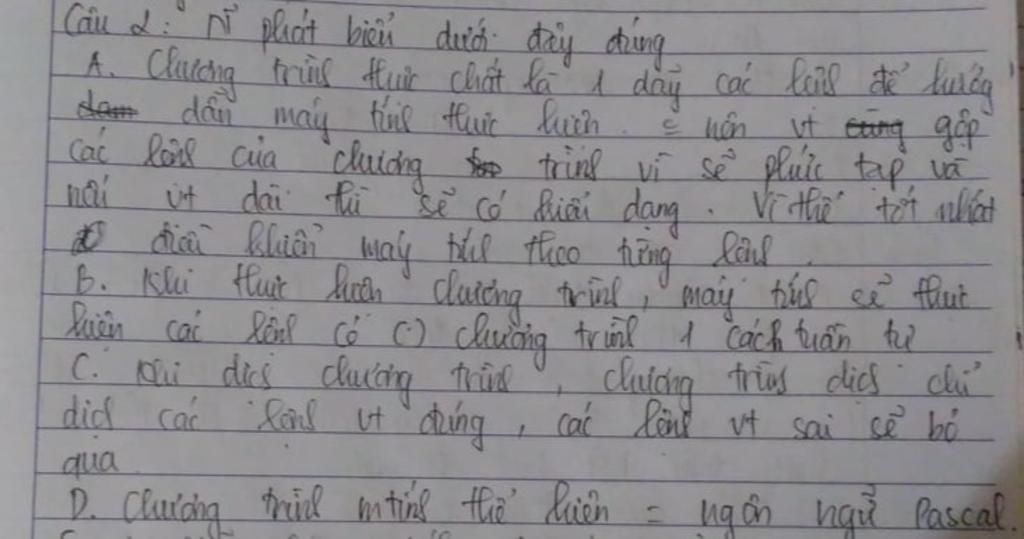 Câu 2: N~ phát biểu dưới đây đúng
A. Chương trình thực chất là 1 dãy các lệnh để hướng
dẫn máy tính thực hiện. = nên vt gộp
các lệnh của chương trình vì sẽ phức tạp và
nếu vt dài thì sẽ có dạng. Vì thế tốt nhất
điều khiển máy tính theo từng lệnh.
B. Khi thực hiện chương trình, máy tính sẽ thực
hiện các lệnh có (.) chương trình 1 cách tuần tự
C. Khi dịch chương trình, chương trình dịch chỉ
dịch các lệnh vt đúng, các lệnh vt sai sẽ bỏ
qua
D. Chương trình mtính thể hiện = ngôn ngữ Pascal.